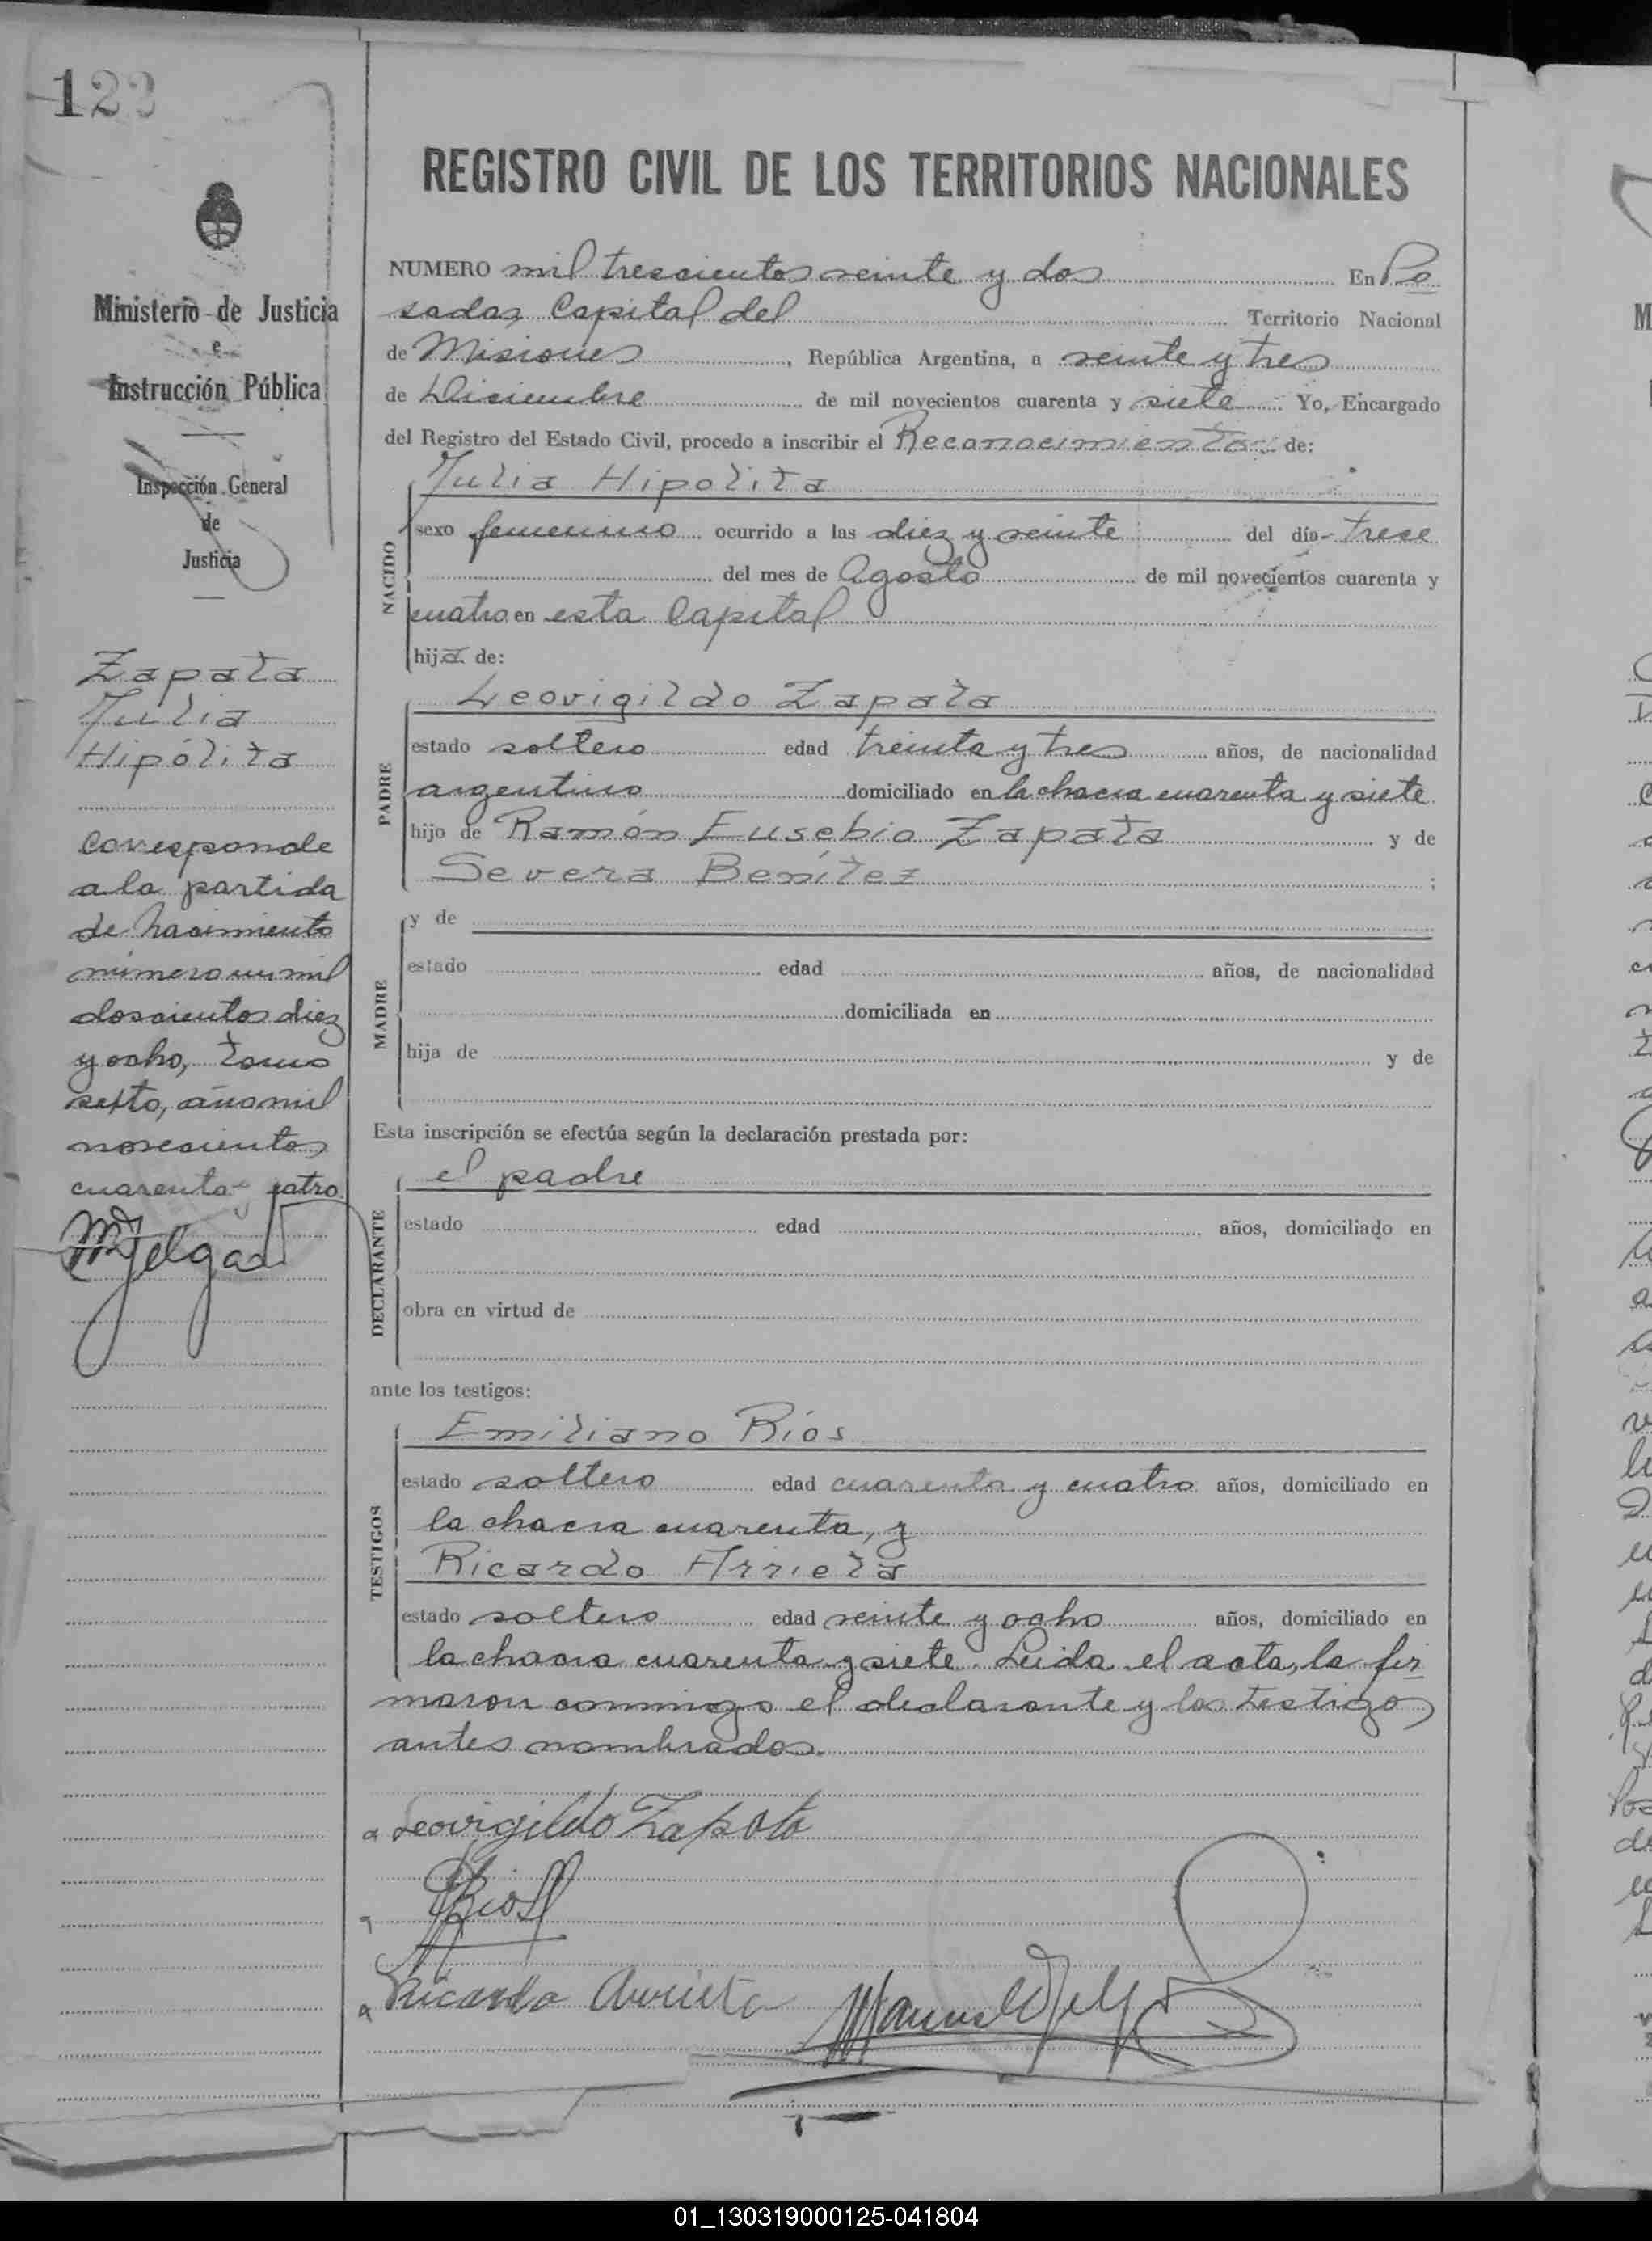 122
Ministerio de Justicia
e
Instrucción Pública
Inspección General
de
Justicia
Zapata
Julia
Hipólita
Corresponde
a la partida
de nacimiento
número un mil
doscientos diez
y ocho, tomo
sexto, año mil
novecientos
cuarenta y
REGISTRO CIVIL DE LOS TERRITORIOS NACIONALES
NUMERO mil trescientos veinte y dos En Po
sadas Capital del Territorio Nacional
de Misiones, República Argentina, a veinte y tres
de Diciembre de mil novecientos cuarenta y siete Yo, Encargado
del Registro del Estado Civil, procedo a inscribir el Reconocimiento de:
Julia Hipolita
NACIDO
sexo femenino ocurrido a las diez y veinte del día trece
del mes de Agosto de mil novecientos cuarenta y
cuatro en esta Capital
hija de:
Leovigildo Zapata
PADRE
estado soltero edad treinta y tres años, de nacionalidad
argentino domiciliado en la chacra cuarenta y siete
hijo de Ramón Eusebio Zapata y de
Severa Benítez ;
MADRE
y de
estado edad años, de nacionalidad
domiciliada en
hija de y de
Esta inscripción se efectúa según la declaración prestada por:
el padre
DECLARANTE
estado edad años, domiciliado en
obra en virtud de
ante los testigos:
Emiliano Ríos
TESTIGOS
estado soltero edad cuarenta y cuatro años, domiciliado en
la chacra cuarenta, y
Ricardo Arrieta
estado soltero edad veinte y ocho años, domiciliado en
la chacra cuarenta y siete. Leida el acta, la fir
maron conmigo el declarante y los testigos
antes nombrados.
Leovigildo Zapata
Rios
Ricardo Arrieta
Manuel
01_130319000125-041804